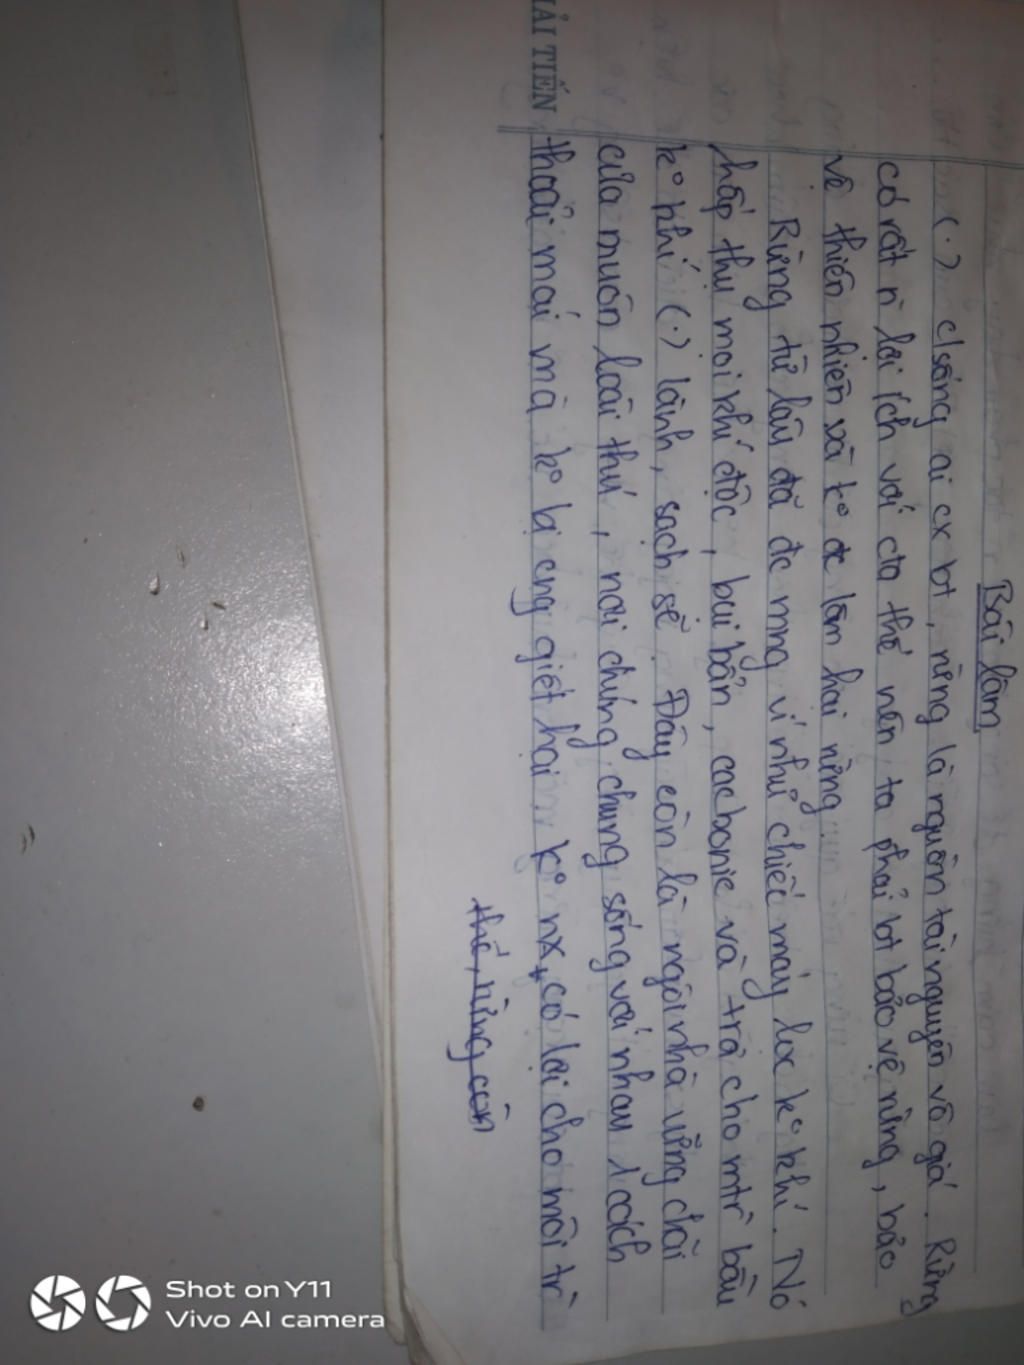 Bài làm
(.) c/sống ai cx bt, rừng là nguồn tài nguyên vô giá. Rừng
có rất n lợi ích với cta thế nên ta phải bt bảo vệ rừng, bảo
vệ thiên nhiên và ko đc làm hại rừng.
Rừng từ lâu đã đc mng ví như chiếc máy lọc ko khí. Nó
hấp thụ mọi khí độc, bụi bẩn, cacbonic và trả cho mtr bầu
ko khí (.) lành, sạch sẽ. Đây còn là ngôi nhà vững chãi
của muôn loài thú, nơi chúng chung sống với nhau 1 cách
thoải mái mà ko bị cng giết hại. ko nx, có lợi cho môi tr
thế, rừng còn
IẢI TIẾN
Shot on Y11
Vivo AI camera